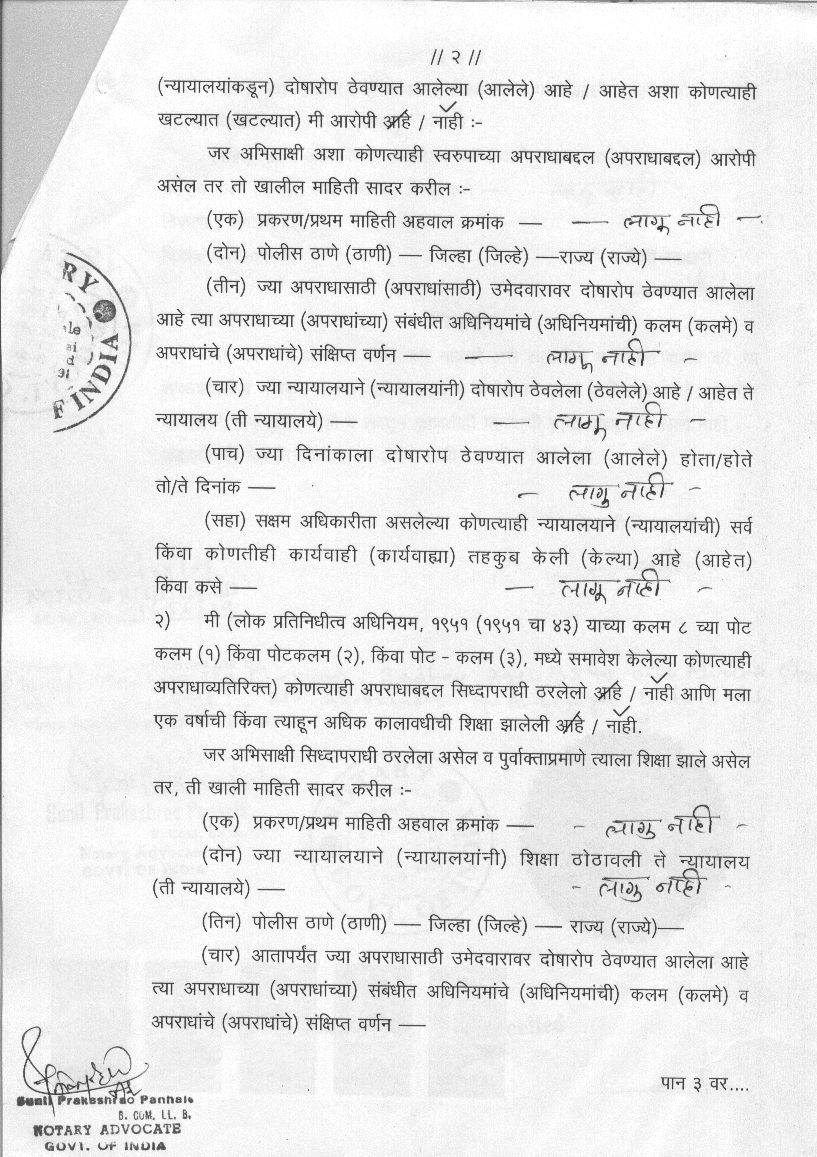 // २ //
(न्यायालयांकडून) दोषारोप ठेवण्यात आलेल्या (आलेले) आहे / आहेत अशा कोणत्याही
खटल्यात (खटल्यात) मी आरोपी आहे / नाही :-
जर अभिसाक्षी अशा कोणत्याही स्वरुपाच्या अपराधाबद्दल (अपराधाबद्दल) आरोपी
असेल तर तो खालील माहिती सादर करील :-
(एक) प्रकरण/प्रथम माहिती अहवाल क्रमांक — — लागू नाही —
(दोन) पोलीस ठाणे (ठाणी) — जिल्हा (जिल्हे) —राज्य (राज्ये) —
(तीन) ज्या अपराधासाठी (अपराधांसाठी) उमेदवारावर दोषारोप ठेवण्यात आलेला
आहे त्या अपराधाच्या (अपराधांच्या) संबंधीत अधिनियमांचे (अधिनियमांची) कलम (कलमे) व
अपराधांचे (अपराधांचे) संक्षिप्त वर्णन — - लागू नाही -
(चार) ज्या न्यायालयाने (न्यायालयांनी) दोषारोप ठेवलेला (ठेवलेले) आहे / आहेत ते
न्यायालय (ती न्यायालये) — - लागू नाही -
(पाच) ज्या दिनांकाला दोषारोप ठेवण्यात आलेला (आलेले) होता/होते
तो/ते दिनांक — - लागु नाही -
(सहा) सक्षम अधिकारीता असलेल्या कोणत्याही न्यायालयाने (न्यायालयांची) सर्व
किंवा कोणतीही कार्यवाही (कार्यवाह्या) तहकुब केली (केल्या) आहे (आहेत)
किंवा कसे — — लागू नाही -
२) मी (लोक प्रतिनिधीत्व अधिनियम, १९५१ (१९५१ चा ४३) याच्या कलम ८ च्या पोट
कलम (१) किंवा पोटकलम (२), किंवा पोट - कलम (३), मध्ये समावेश केलेल्या कोणत्याही
अपराधाव्यतिरिक्त) कोणत्याही अपराधाबद्दल सिध्दापराधी ठरलेलो आहे / नाही आणि मला
एक वर्षाची किंवा त्याहून अधिक कालावधीची शिक्षा झालेली आहे / नाही.
जर अभिसाक्षी सिध्दापराधी ठरलेला असेल व पुर्वाक्ताप्रमाणे त्याला शिक्षा झाले असेल
तर, ती खाली माहिती सादर करील :-
(एक) प्रकरण/प्रथम माहिती अहवाल क्रमांक — - लागु नाही -
(दोन) ज्या न्यायालयाने (न्यायालयांनी) शिक्षा ठोठावली ते न्यायालय
(ती न्यायालये) — - लागु नाही -
(तिन) पोलीस ठाणे (ठाणी) — जिल्हा (जिल्हे) — राज्य (राज्ये)—
(चार) आतापर्यंत ज्या अपराधासाठी उमेदवारावर दोषारोप ठेवण्यात आलेला आहे
त्या अपराधाच्या (अपराधांच्या) संबंधीत अधिनियमांचे (अधिनियमांची) कलम (कलमे) व
अपराधांचे (अपराधांचे) संक्षिप्त वर्णन —
पान ३ वर....
Sunil Prakashrao Panhale
B. COM, LL. B.
NOTARY ADVOCATE
GOVT. OF INDIA
RY
F INDIA